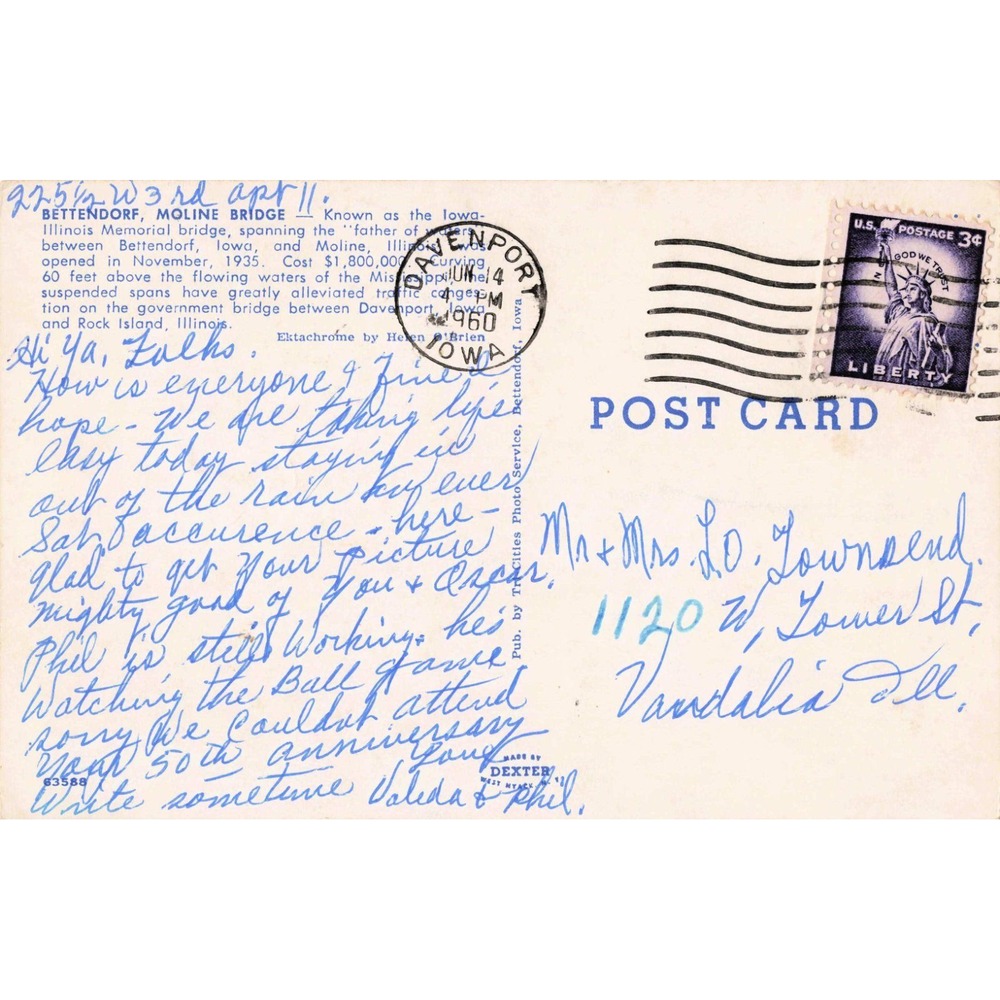 225½ W 3rd apt 11.
BETTENDORF, MOLINE BRIDGE — Known as the Iowa-
Illinois Memorial bridge, spanning the "father of waters"
between Bettendorf, Iowa, and Moline, Illinois was
opened in November, 1935. Cost $1,800,000. Curving
60 feet above the flowing waters of the Mississippi, the
suspended spans have greatly alleviated traffic conges-
tion on the government bridge between Davenport, Iowa
and Rock Island, Illinois.
Ektachrome by Helen O'Brien
Hi Ya, Folks.
How is everyone? Fine I
hope - We are taking life
easy today staying in
out of the rain
Sat. occurence - here -
Glad to get your picture
mighty good of you & Oscar.
Phil is still Working. he's
Watching the Ball game
sorry We Couldnt attend
Your 50th anniversary
Love
Write sometime Valeda & Phil.
63588
Pub. by Tri-Cities Photo Service, Bettendorf, Iowa
MADE BY
DEXTER
WEST NYACK N. Y.
DAVENPORT
JUN 14
4 PM
1960
IOWA
U.S. POSTAGE 3¢
IN GOD WE TRUST
LIBERTY
POST CARD
Mr & Mrs. L.O. Townsend.
1120 W, Tower St,
Vandalia Ill.